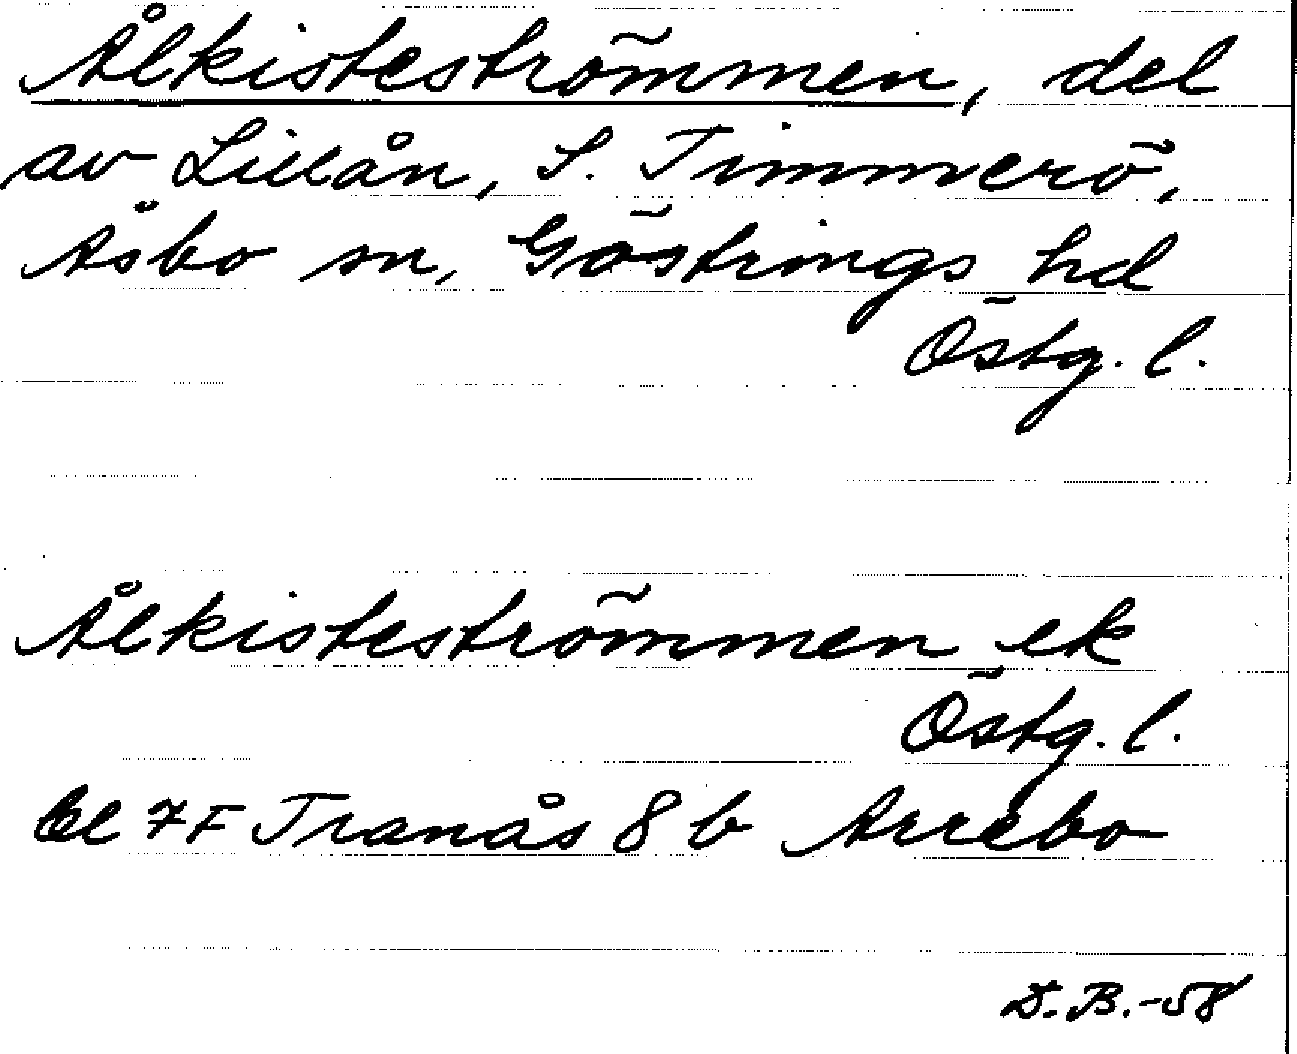 Ålkisteströmmen, del
av Lillån, S. Timmerö,
Åsbo sn, Göstrings hd
Östg. l.
Ålkisteströmmen ek
Östg. l.
bl 7F Tranås 8 b Arrebo
D.B.-58